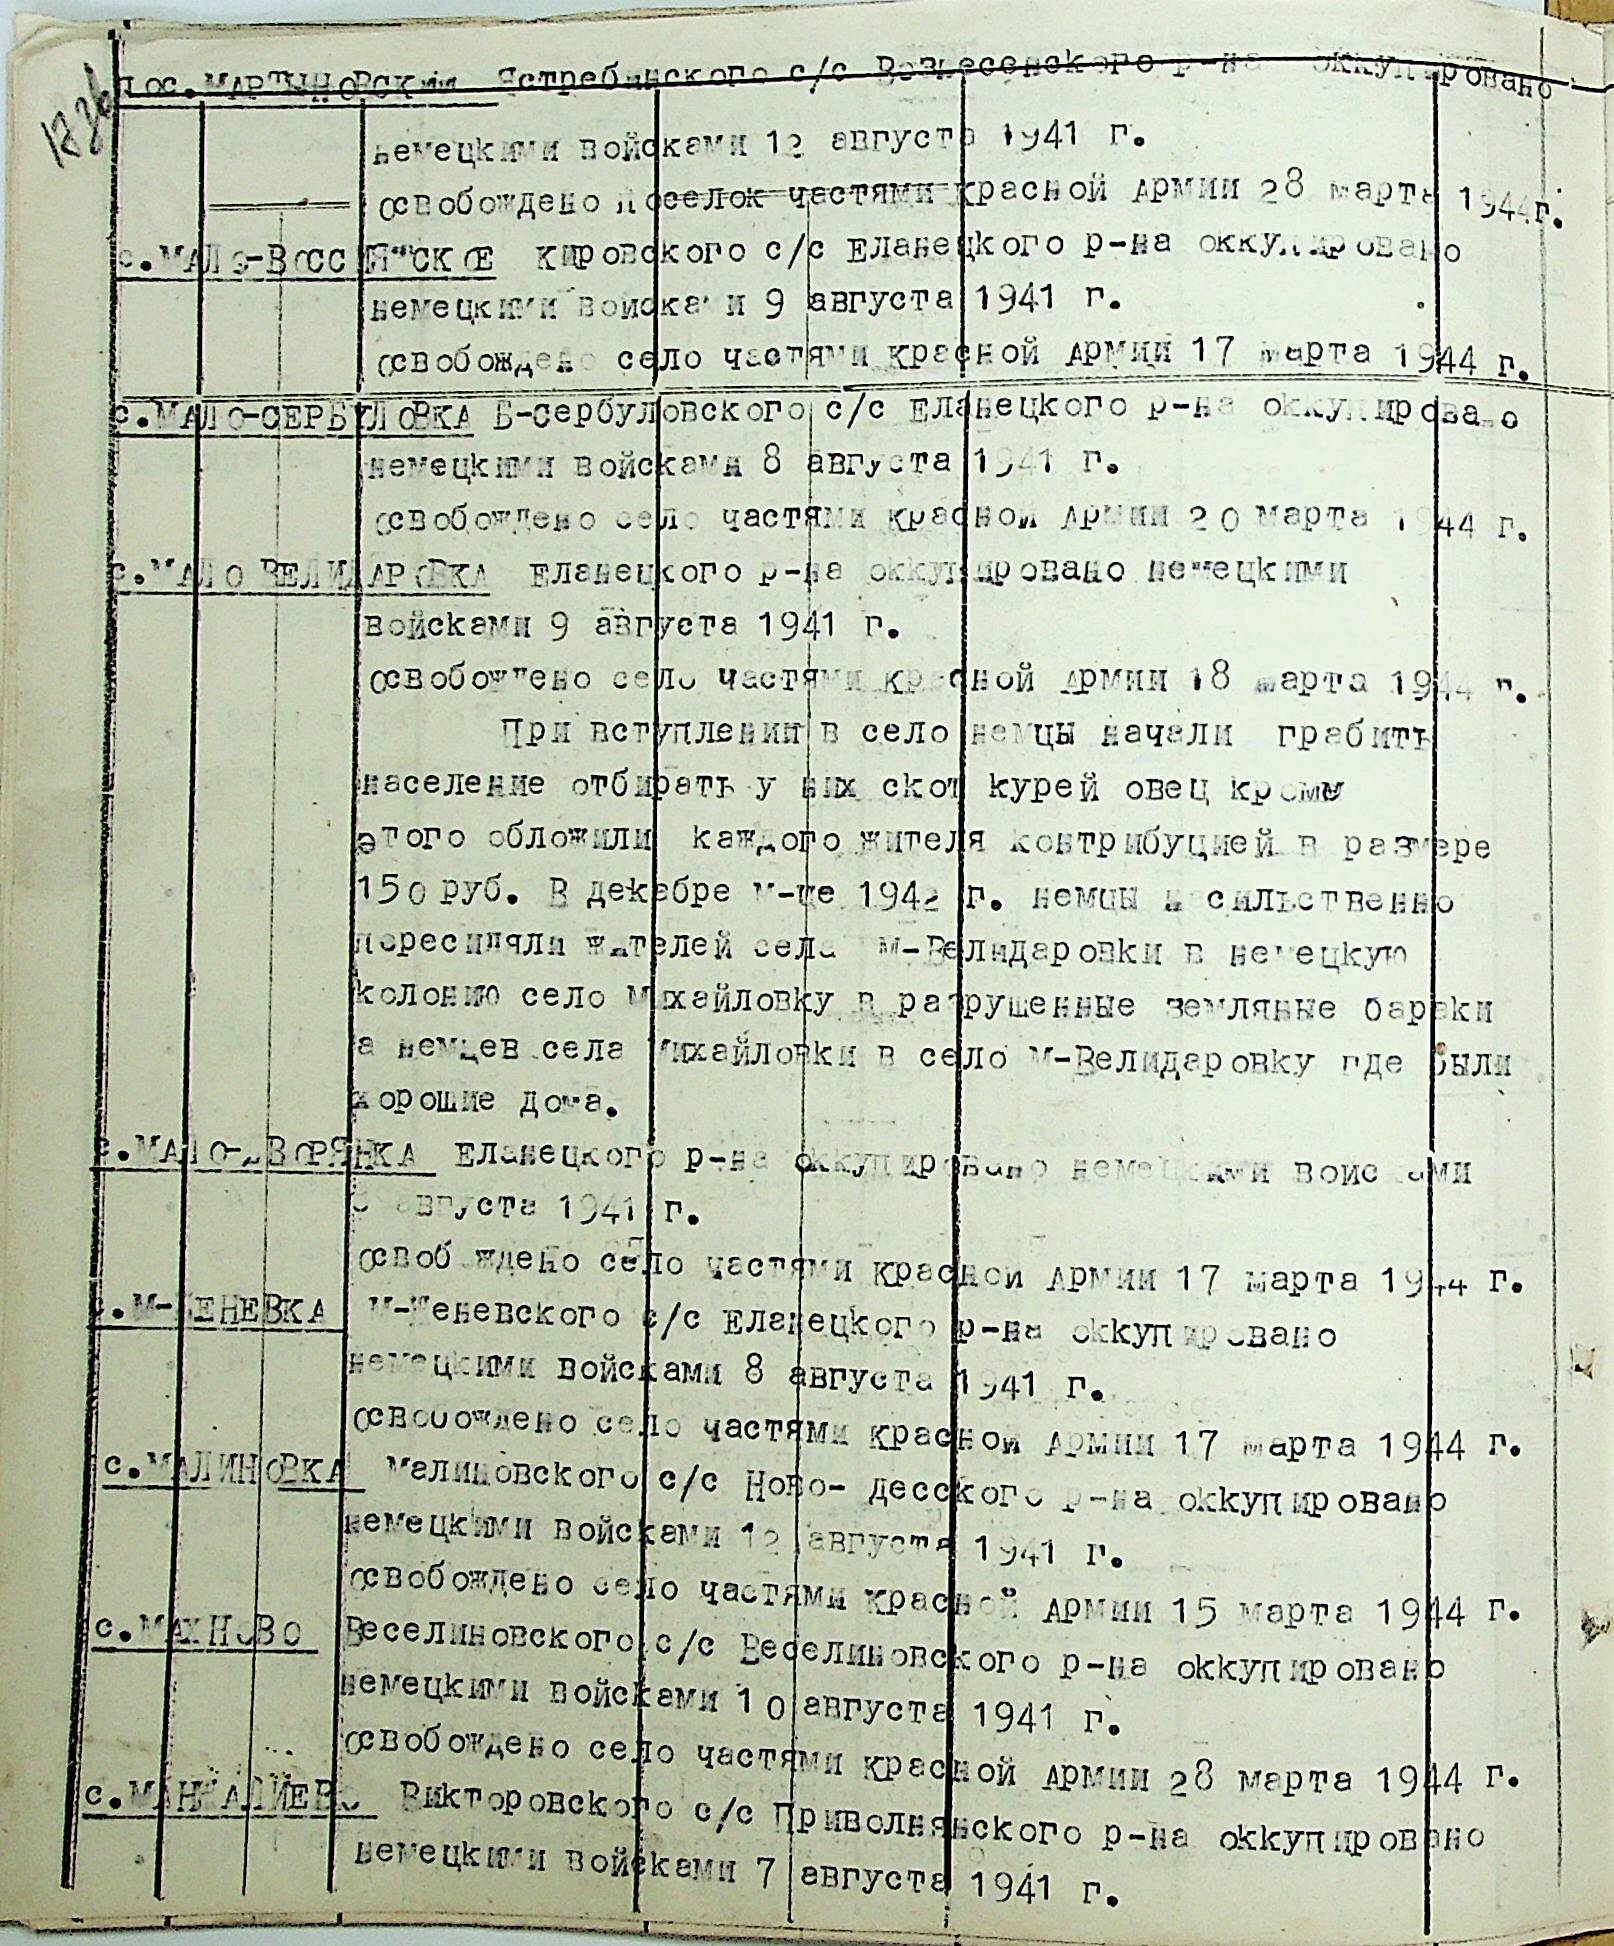 пос.МАРТЫНОВСКИЙ Ястребинского с/с Вознесенского р-на оккупировано
немецкими войсками 12 августа 1941 г.
освобождено поселок частями красной Армии 28 марта 1944г.
с.МАЛО-ВОССИЯТСКОЕ Кировского с/с Еланецкого р-на оккупировано
немецкими войсками 9 августа 1941 г.
освобождено село частями красной Армии 17 марта 1944 г.
с.МАЛО-СЕРБУЛОВКА Б-Сербуловского с/с Еланецкого р-на оккупировано
немецкими войсками 8 августа 1941 г.
освобождено село частями красной Армии 20 марта 1944 г.
с.МАЛО ВЕЛИДАРОВКА Еланецкого р-на оккупировано немецкими
войсками 9 августа 1941 г.
освобождено село частями красной Армии 18 марта 1944 г.
При вступлении в село немцы начали грабить
население отбирать у них скот курей овец кроме
этого обложили каждого жителя контрибуцией в размере
150 руб. В декабре м-це 1942 г. немцы насильственно
пересиляли жителей села М-Велидаровки в немецкую
колонию село Михайловку в разрушенные земляные бараки
а немцев села Михайловки в село М-Велидаровку где были
хорошие дома.
с.МАЛО-ДВОРЯНКА Еланецкого р-на оккупировано немецкими войсками
августа 1941 г.
освобождено село частями красной Армии 17 марта 1944 г.
с/с Еланецкого р-на оккупировано
немецкими войсками 8 августа 1941 г.
освобождено село частями красной Армии 17 марта 1944 г.
с.МАЛИНОВКА Малиновского с/с Ново- десского р-на оккупировано
немецкими войсками 12 августа 1941 г.
освобождено село частями красной Армии 15 марта 1944 г.
с.МАХНОВО Веселиновского с/с Веселиновского р-на оккупировано
немецкими войсками 10 августа 1941 г.
освобождено село частями красной Армии 28 марта 1944 г.
Викторовского с/с Приволнянского р-на оккупировано
немецкими войсками 7 августа 1941 г.